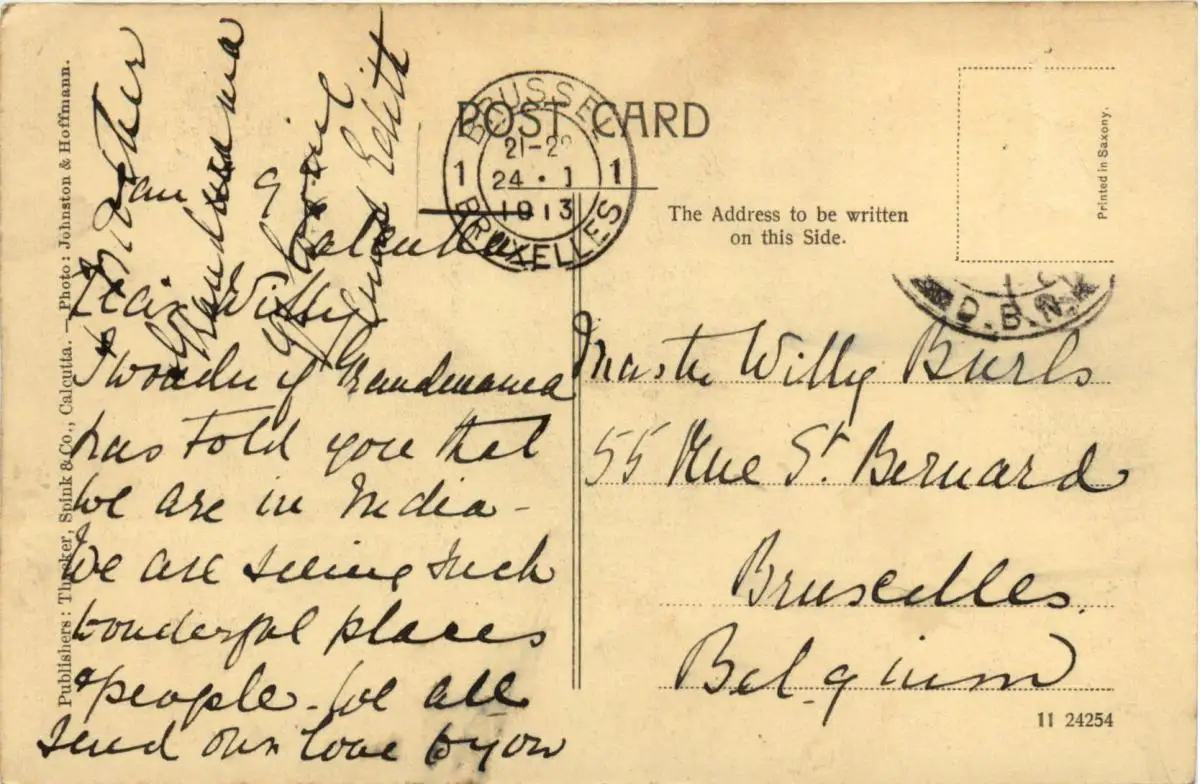 POST CARD
The Address to be written
on this Side.
Printed in Saxony.
BRUSSEL
21-22
1 24 · 1 1
1913
BRUXELLES
D.B.N.
Jan 9
Calcutta
Dear Willy
I wonder if Grandmama
has told you that
we are in India -
We are seeing such
wonderful places
& people. We all
send our love to you
Mother
Grandmama
&
Aunt Edith
Master Willy Burls
55 Rue St. Bernard
Bruxelles.
Belgium
11 24254
Publishers: Thacker, Spink & Co., Calcutta. — Photo: Johnston & Hoffmann.